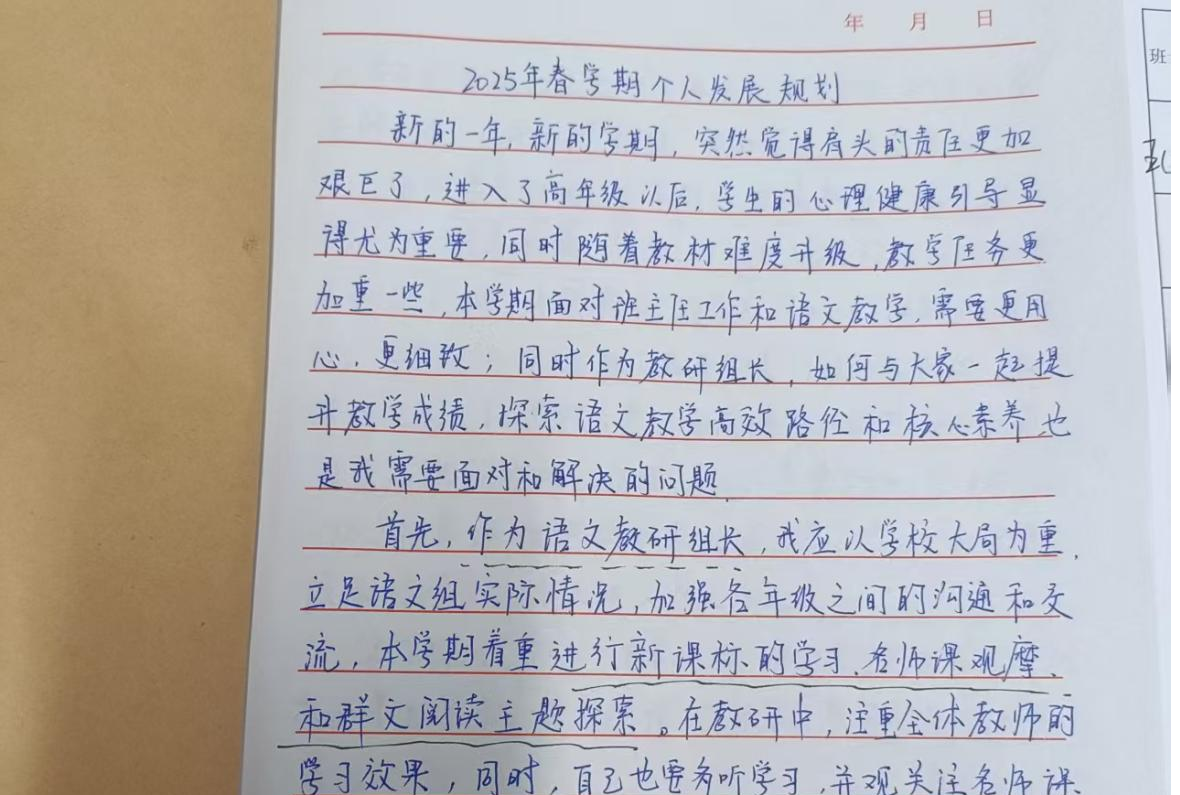 年 月 日
2025年春学期个人发展规划
新的一年,新的学期,突然觉得肩头的责任更加
艰巨了,进入了高年级以后,学生的心理健康引导显
得尤为重要,同时随着教材难度升级,教学任务更
加重一些,本学期面对班主任工作和语文教学,需要更用
心,更细致;同时作为教研组长,如何与大家一起提
升教学成绩,探索语文教学高效路径和核心素养也
是我需要面对和解决的问题.
首先,作为语文教研组长,我应以学校大局为重,
立足语文组实际情况,加强各年级之间的沟通和交
流,本学期着重进行新课标的学习、名师课观摩、
和群文阅读主题探索。在教研中,注重全体教师的
学习效果,同时,自己也要多听学习,并观关注名师课
班